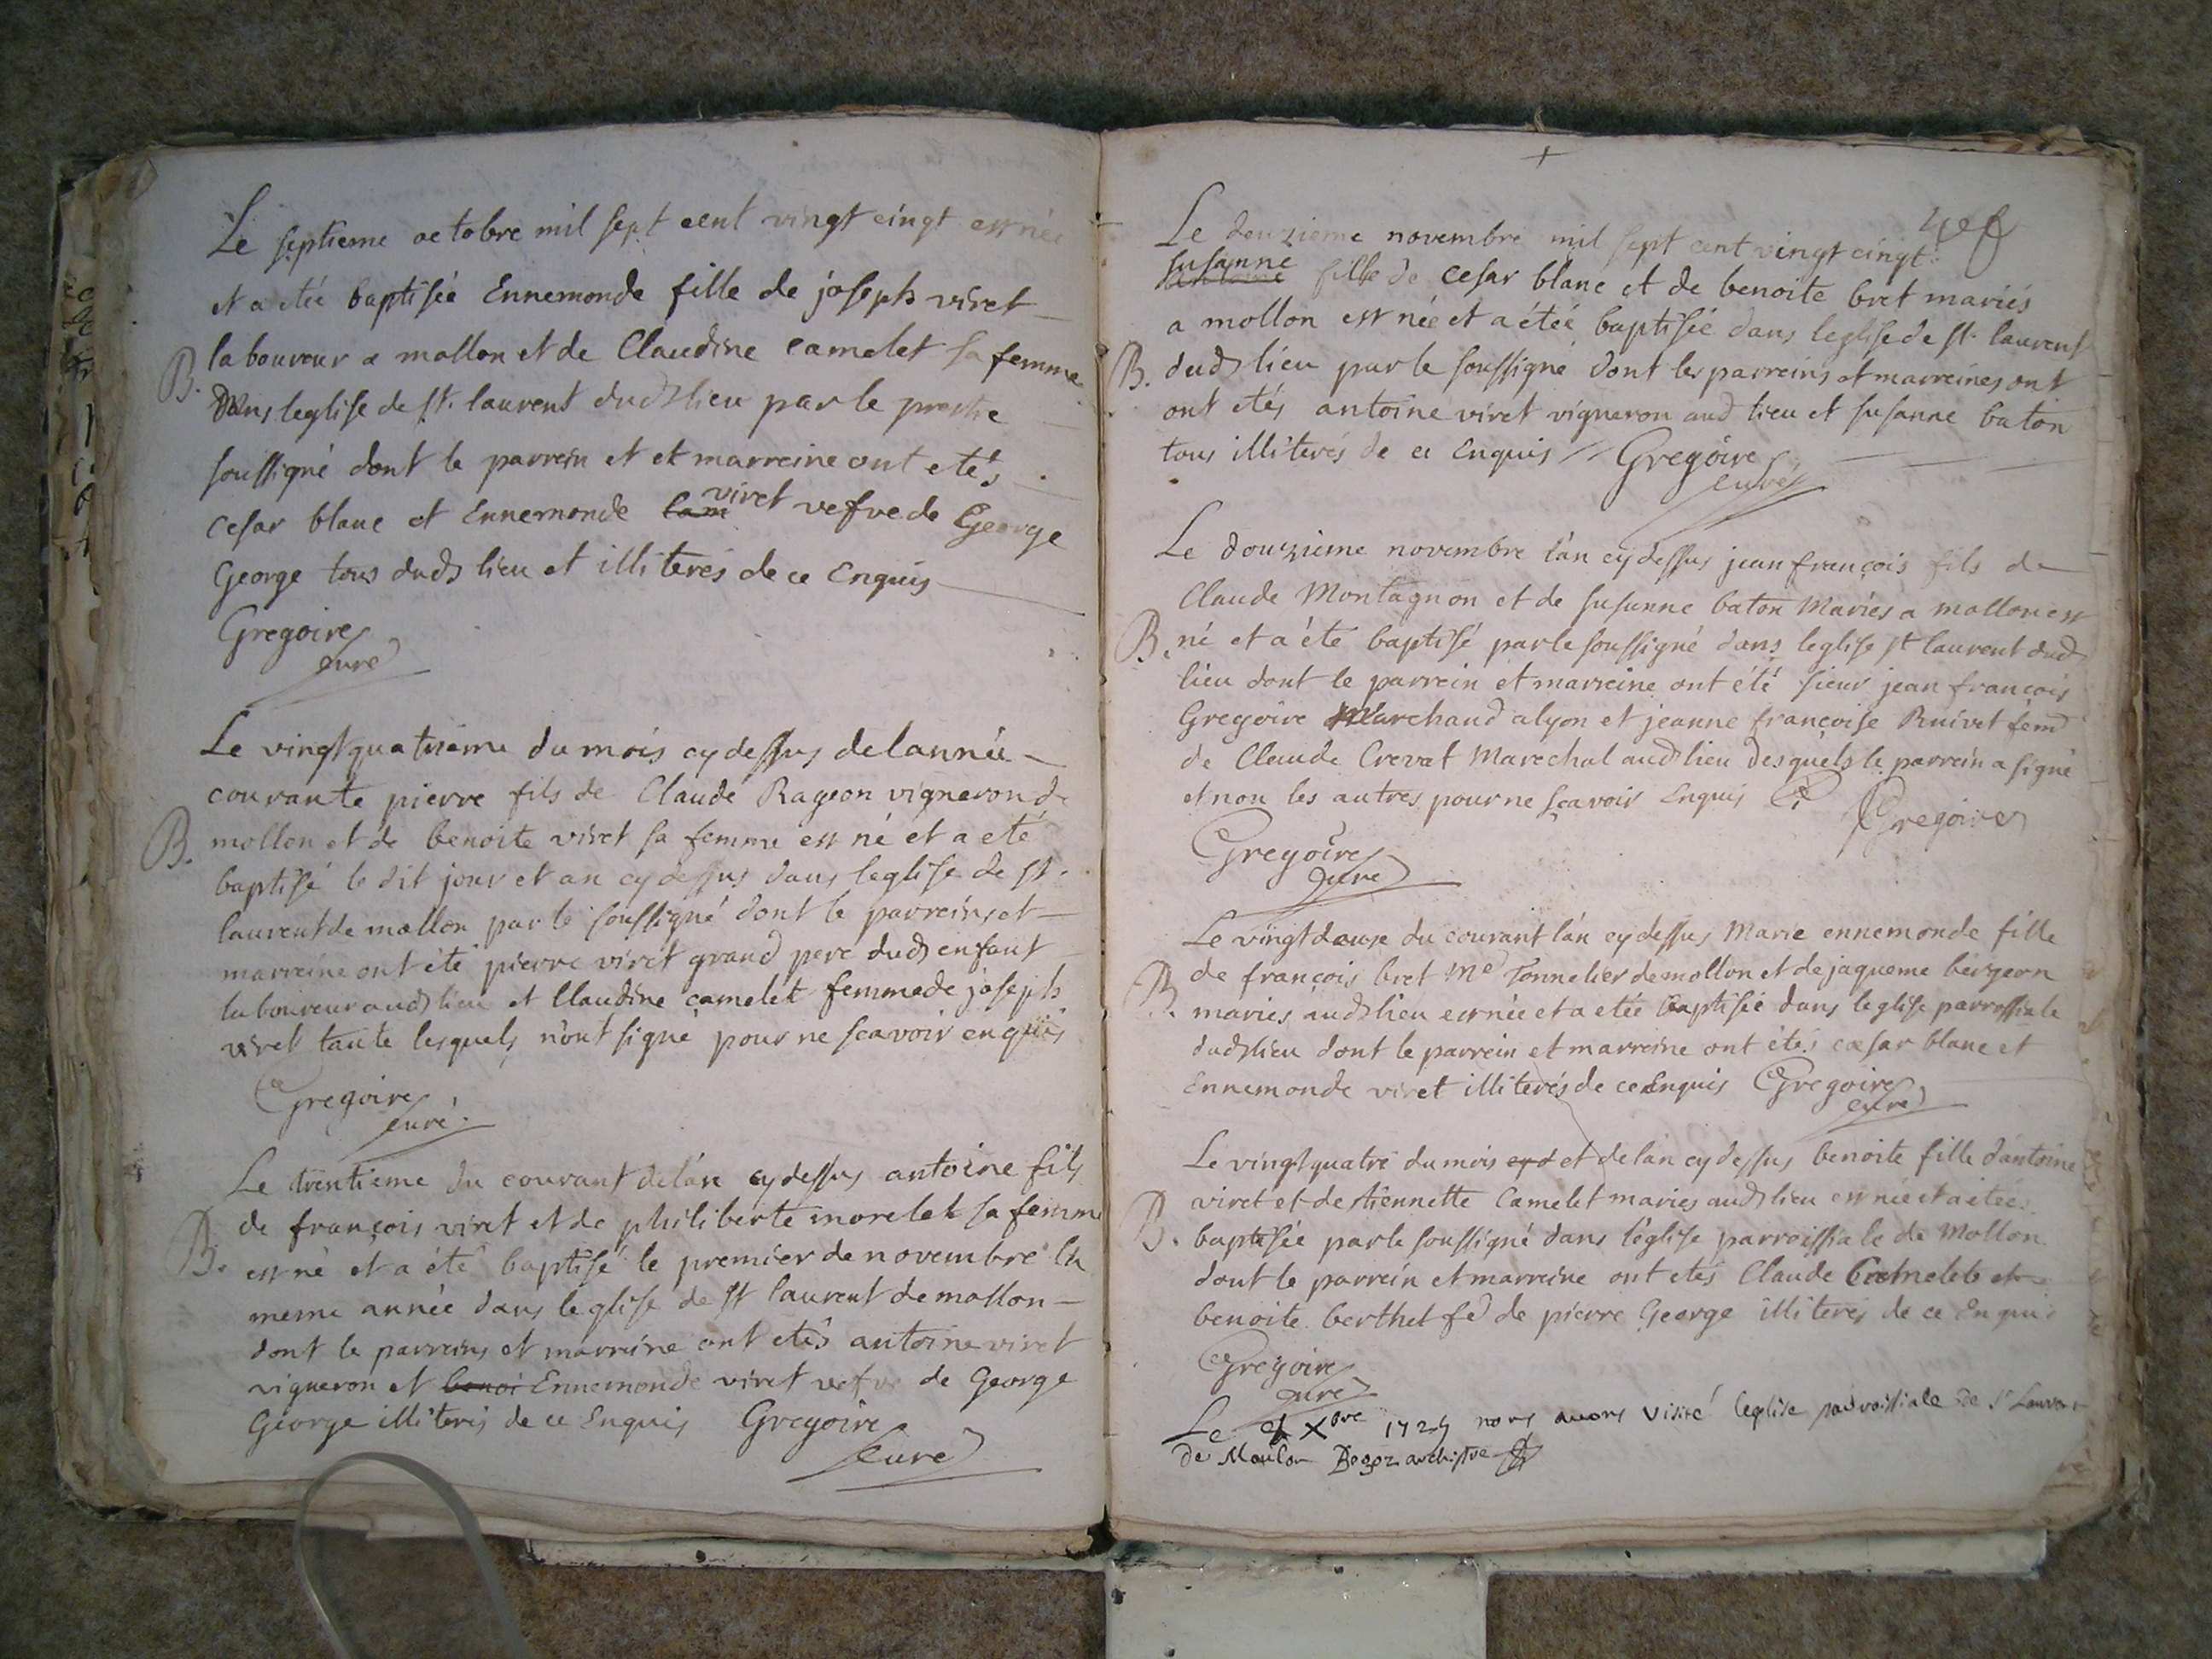 Le septieme octobre mil sept cent vingt cinqt est née
et a etée baptisée Ennemonde fille de joseph viret
B. laboureur a mollon et de Claudine camelet sa femme
Dans leglise de st. laurent dud lieu par le prestre
soussigné dont le parrein et et marreine ont etés
cesar blanc et Ennemonde viret vefve de George
George tous dud lieu et illiterés de ce Enquis
Gregoire
curé
Le vingt quatrieme du mois cy dessus de lannée
courante pierre fils de Claude Rageon vigneron de
B. mollon et de benoite viret sa femme est né et a eté
baptisé le dit jour et an cy dessus dans leglise de st.
laurent de mollon par le soussigné dont le parreins et
marreine ont été pierre viret grand pere dud enfant
laboureur aud lieu et Claudine camelet femme de joseph
viret tante lesquels n'ont signé pour ne scavoir enquis
Gregoire
curé
Le trentieme du courant de lan cy dessus antoine fils
de françois viret et de philiberte morelet sa femme
B. est né et a été baptisé le premier de novembre la
meme année dans leglise de st laurent de mollon
dont le parreins et marreine ont etés antoine viret
vigneron et benoi Ennemonde viret vefve de George
George illiterés de ce Enquis Gregoire
curé
Le deuzieme novembre mil sept cent vingt cinqt
susanne fille de cesar blanc et de benoite bret mariés
a mollon est née et a étée baptisée dans leglise de st. laurent
B. dud lieu par le soussigné dont les parreins et marreines ont
ont etés antoine viret vigneron aud lieu et susanne baton
tous illiterés de ce Enquis Gregoire
curé
Le douzieme novembre l'an cy dessus jean françois fils de
Claude Montagnon et de susanne baton Mariés a mollon est
B. né et a été baptisé par le soussigné dans leglise st laurent dud
lieu dont le parrein et marreine ont été sieur jean françois
Gregoire Marchand a lyon et jeanne françoise Ruivet fem
de Claude Crevat Marechal aud lieu desquels le parrein a signé
et non les autres pour ne sçavoir Enquis Gregoire
Gregoire
curé
Le vingt douse du courant l'an cy dessus Marie ennemonde fille
de françois bret Me Tonnelier de mollon et de jaqueme bergeon
B. mariés aud lieu est née et a etée baptisée dans leglise parrossiale
dud lieu dont le parrein et marreine ont étés cæsar blanc et
Ennemonde viret illiterés de ce Enquis Gregoire
curé
Le vingt quatre du mois cyd et de lan cy dessus benoite fille d'antoine
viret et de stiennette Camelet mariés aud lieu est née et a étée
B. baptisée par le soussigné dans l'église parroissiale de Mollon
dont le parrein et marreine ont etés Claude Camelet et
benoite berthet fe de pierre George illiterés de ce Enquis
Gregoire
curé
Le Xbre 1725 nous avons visité leglise parroissiale de St Laurent
de Moulon archiptre